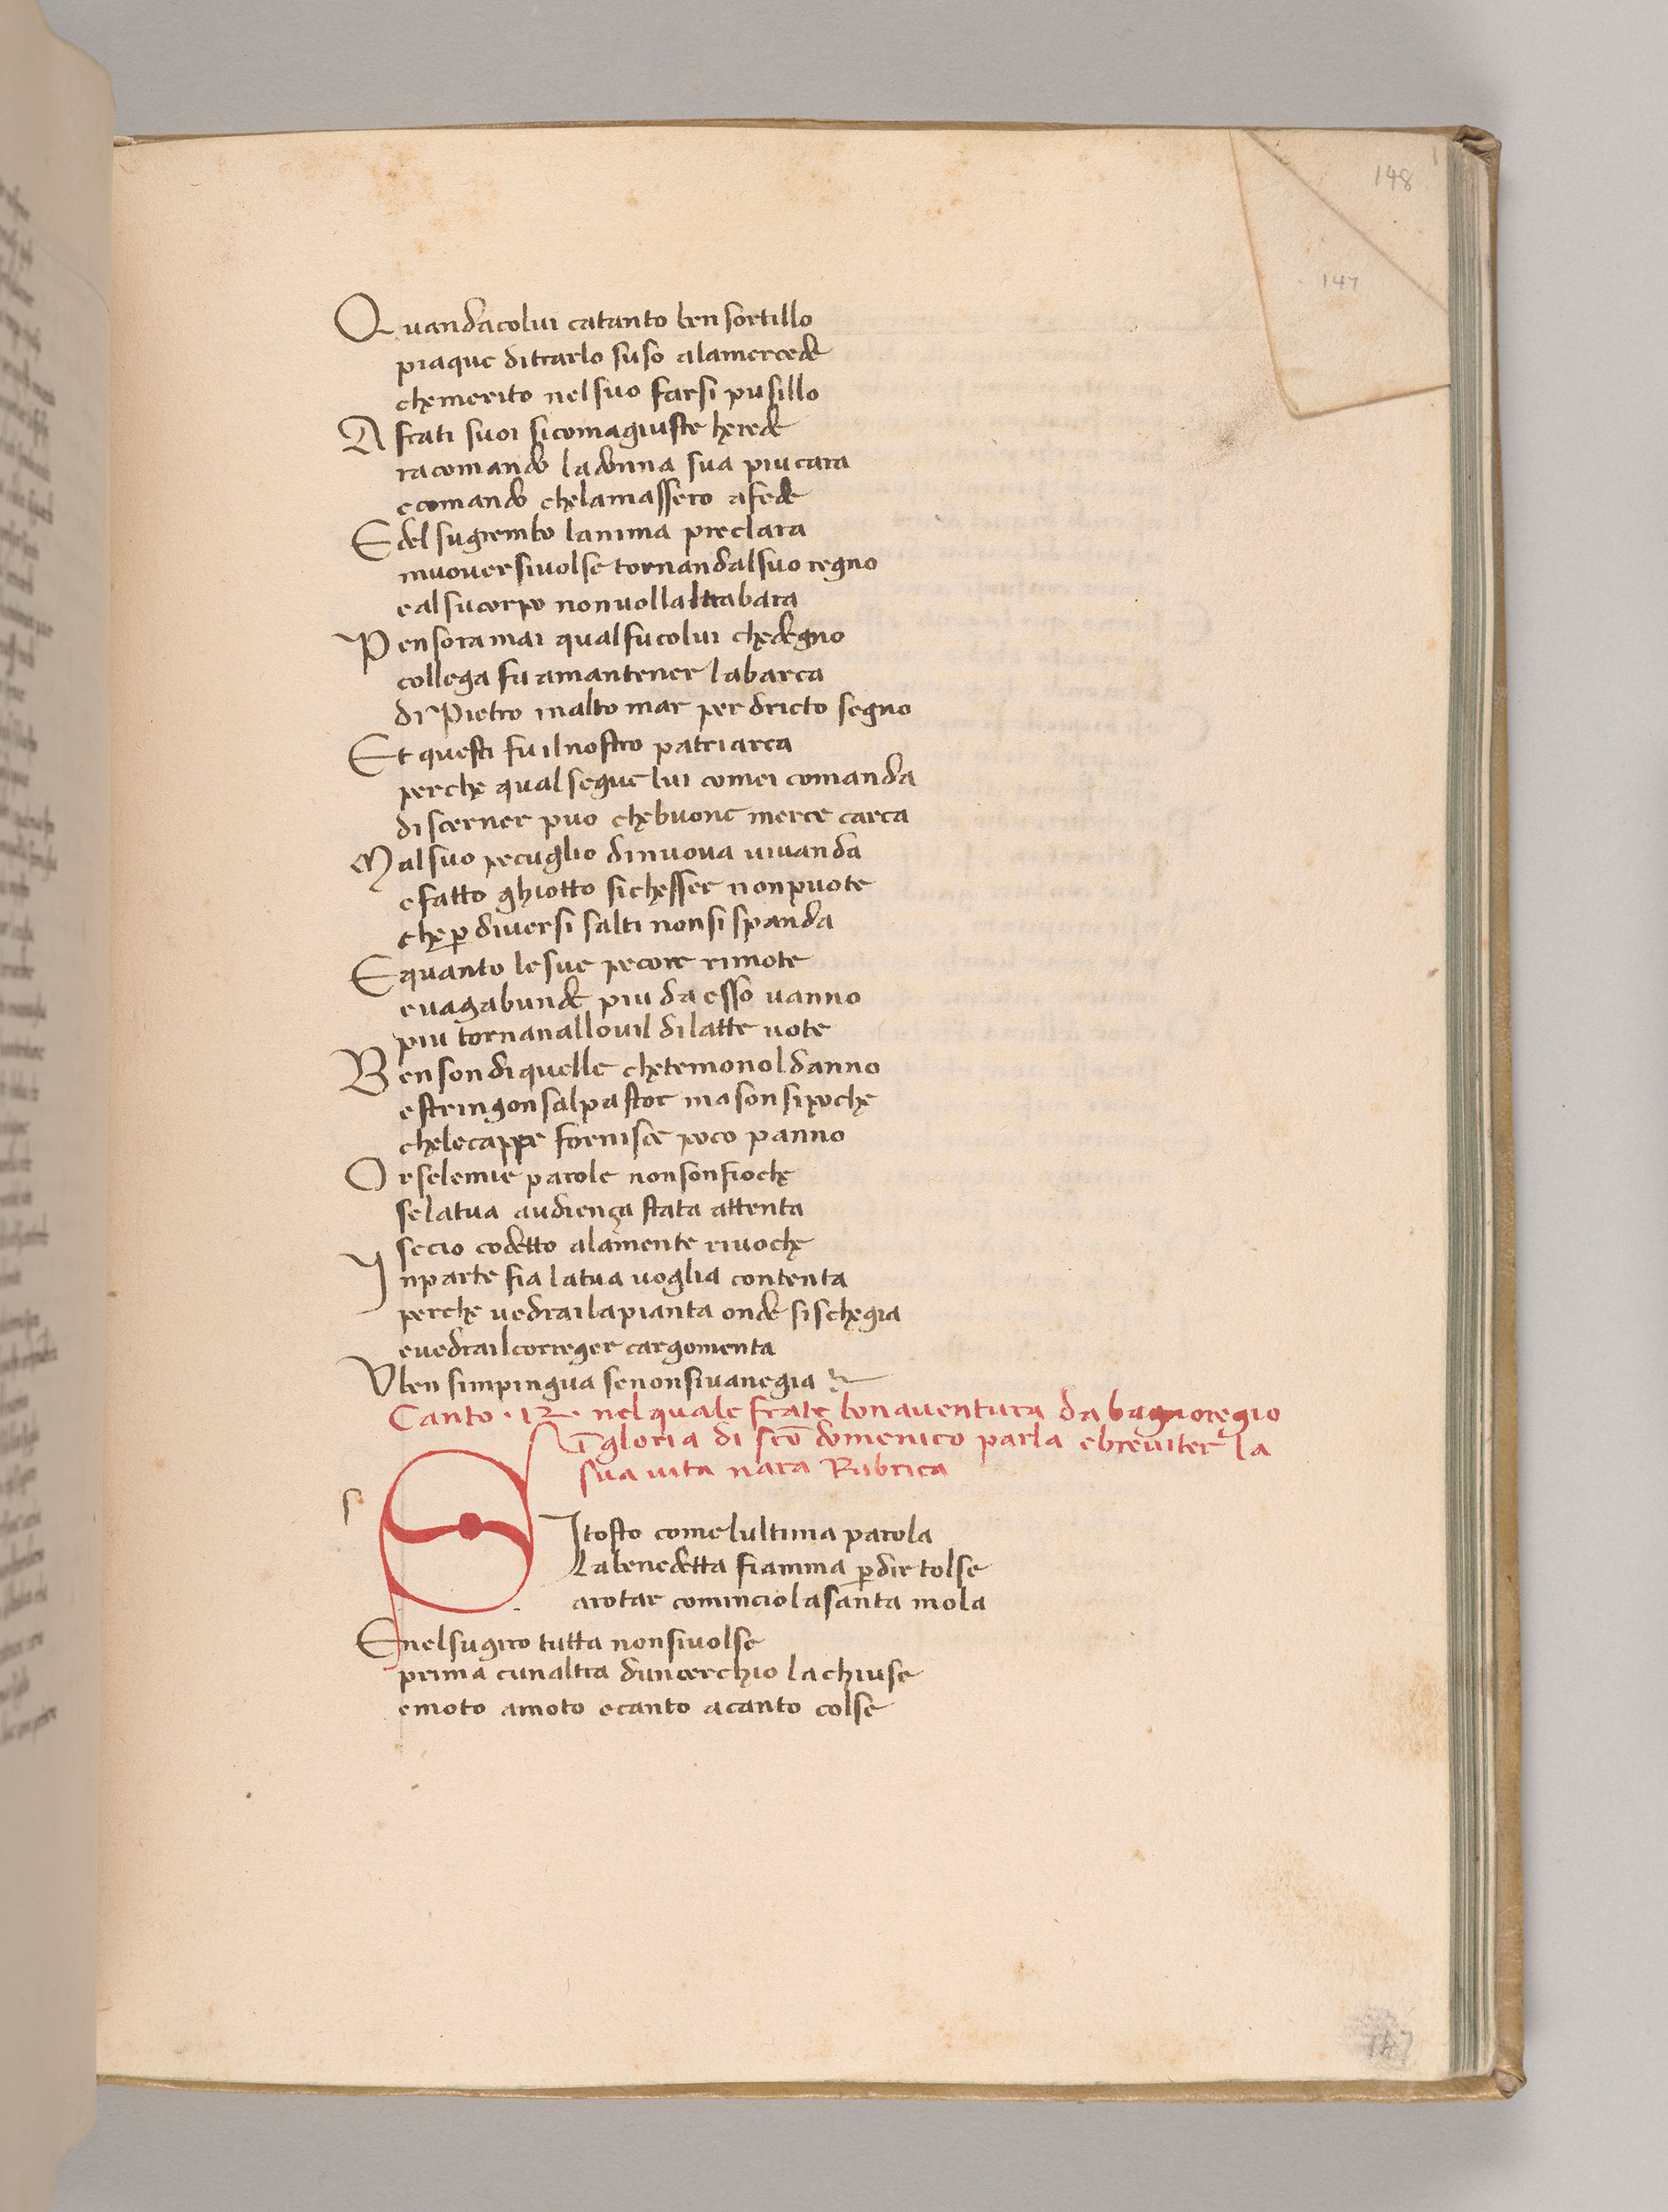 148
147
Quandacolui catanto ben sortillo
piaque ditrarlo suso alamercede
chemerito nelsuo farsi pusillo
A frati suoi sicomagiuste herede
racomando ladonna sua piucara
ecomando chelamassero afede
Edel sugrembo lanima preclara
muouersiuolse tornandalsuo regno
ealsucorpo nonuollaltrabara
Pensoramai qualfucolui chedegno
collega fu amantener labarca
di Pietro inalto mar per dricto segno
Et questi fuilnostro patriarca
perche qualsegue lui comei comanda
discerner puo chebuone merce carca
Malsuo peculglio dinuoua uiuanda
efatto ghiotto sichesser nonpuote
che ꝑ diuersi salti nonsi spanda
Equanto lesue pecore rimote
euagabunde piu da esso uanno
piu tornanallouil dilatte uote
Bensondiquelle chetemonoldanno
estringonsalpastor masonsipoche
chelecappe fornisce poco panno
Orselemie parole nonsonfioche
selatua audiença stata attenta
secio codetto alamente riuoche
Inparte fia latua uoglia contenta
perche uedrailapianta onde sischegia
euedrailcorreger cargomenta
Uben simpingua senonsiuanegia
Canto · 12 · nelquale frate bonauentura da bagnoregio
ī gloria di sco domenico parla ebreuiter la
sua uita nara Rubrica
s
SItosto comelultima parola
Labenedetta fiamma ꝑ dir tolse
arotar comincio lasanta mola
Enelsugiro tutta nonsiuolse
prima cunaltra duncerchio lachiuse
emoto amoto ecanto acanto colse
147